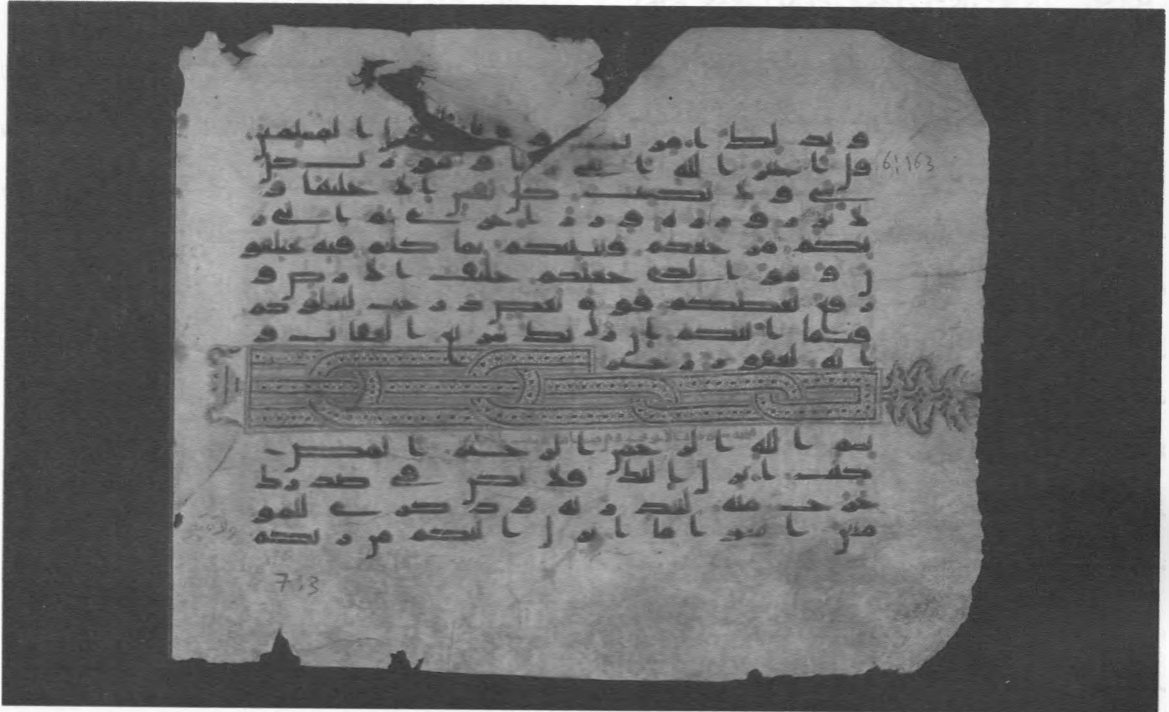 و بذلك امرت و انا اول المسلمين
قل اغير الله ابغى ربا و هو رب كل 6:163
شى و لا تكسب كل نفس الا عليها و
لا تزر وزرة وزر اخرى ثم الى ر
بكم مرجعكم فينبئكم بما كنتم فيه تختلفو
ن و هو الذى جعلكم خلئف الارض و
رفع بعضكم فوق بعض درجت ليبلوكم
فيما اتيكم ان ربك سريع العقاب و
انه لغفور رحيم
بسم الله الرحمن الرحيم المص
كتب انزل اليك فلا يكن فى صدرك
حرج منه لتنذر به و ذكرى للمو
منين اتبعوا ما انزل اليكم من ربكم
7:3